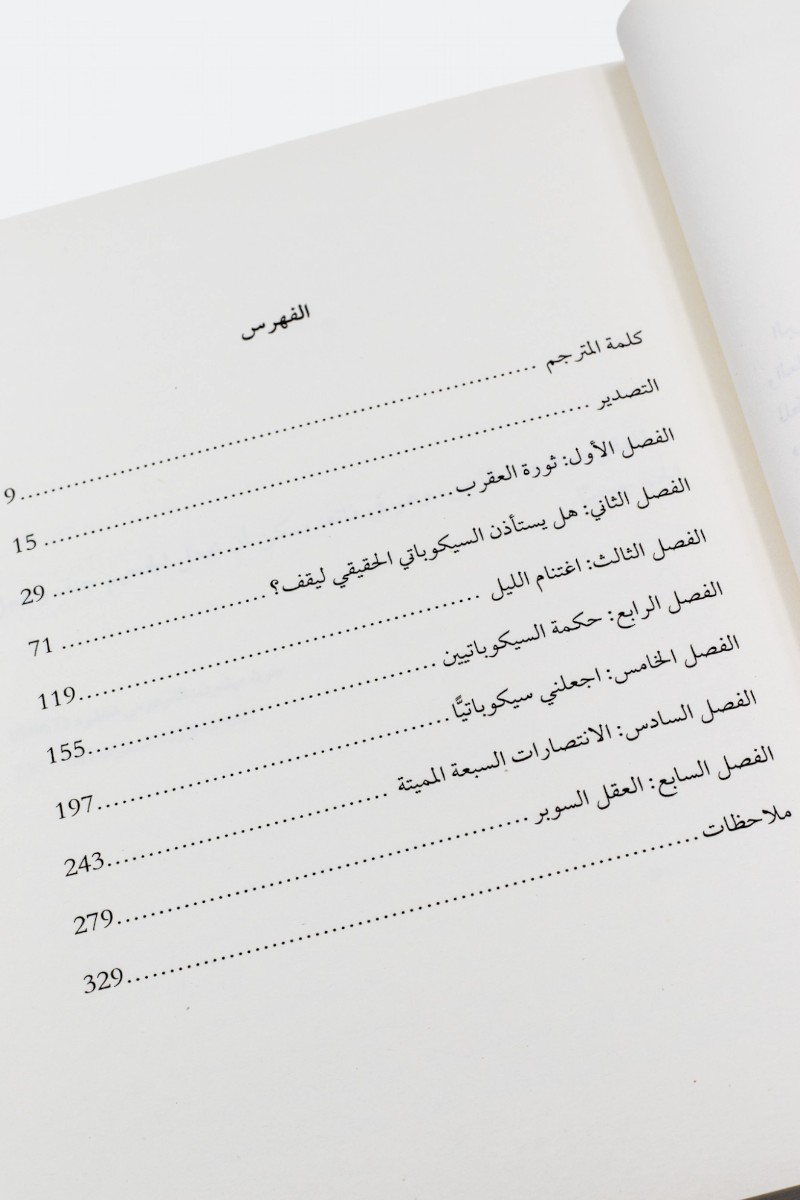 الفهرس
كلمة المترجم ........ 9
التصدير ........ 15
الفصل الأول: ثورة العقرب ........ 29
الفصل الثاني: هل يستأذن السيكوباتي الحقيقي ليقف؟ ........ 71
الفصل الثالث: اغتنام الليل ........ 119
الفصل الرابع: حكمة السيكوباتيين ........ 155
الفصل الخامس: اجعلني سيكوباتيًّا ........ 197
الفصل السادس: الانتصارات السبعة المميتة ........ 243
الفصل السابع: العقل السوبر ........ 279
ملاحظات ........ 329